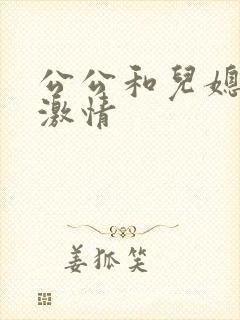 公公和兒媳
激情
姜狐笑